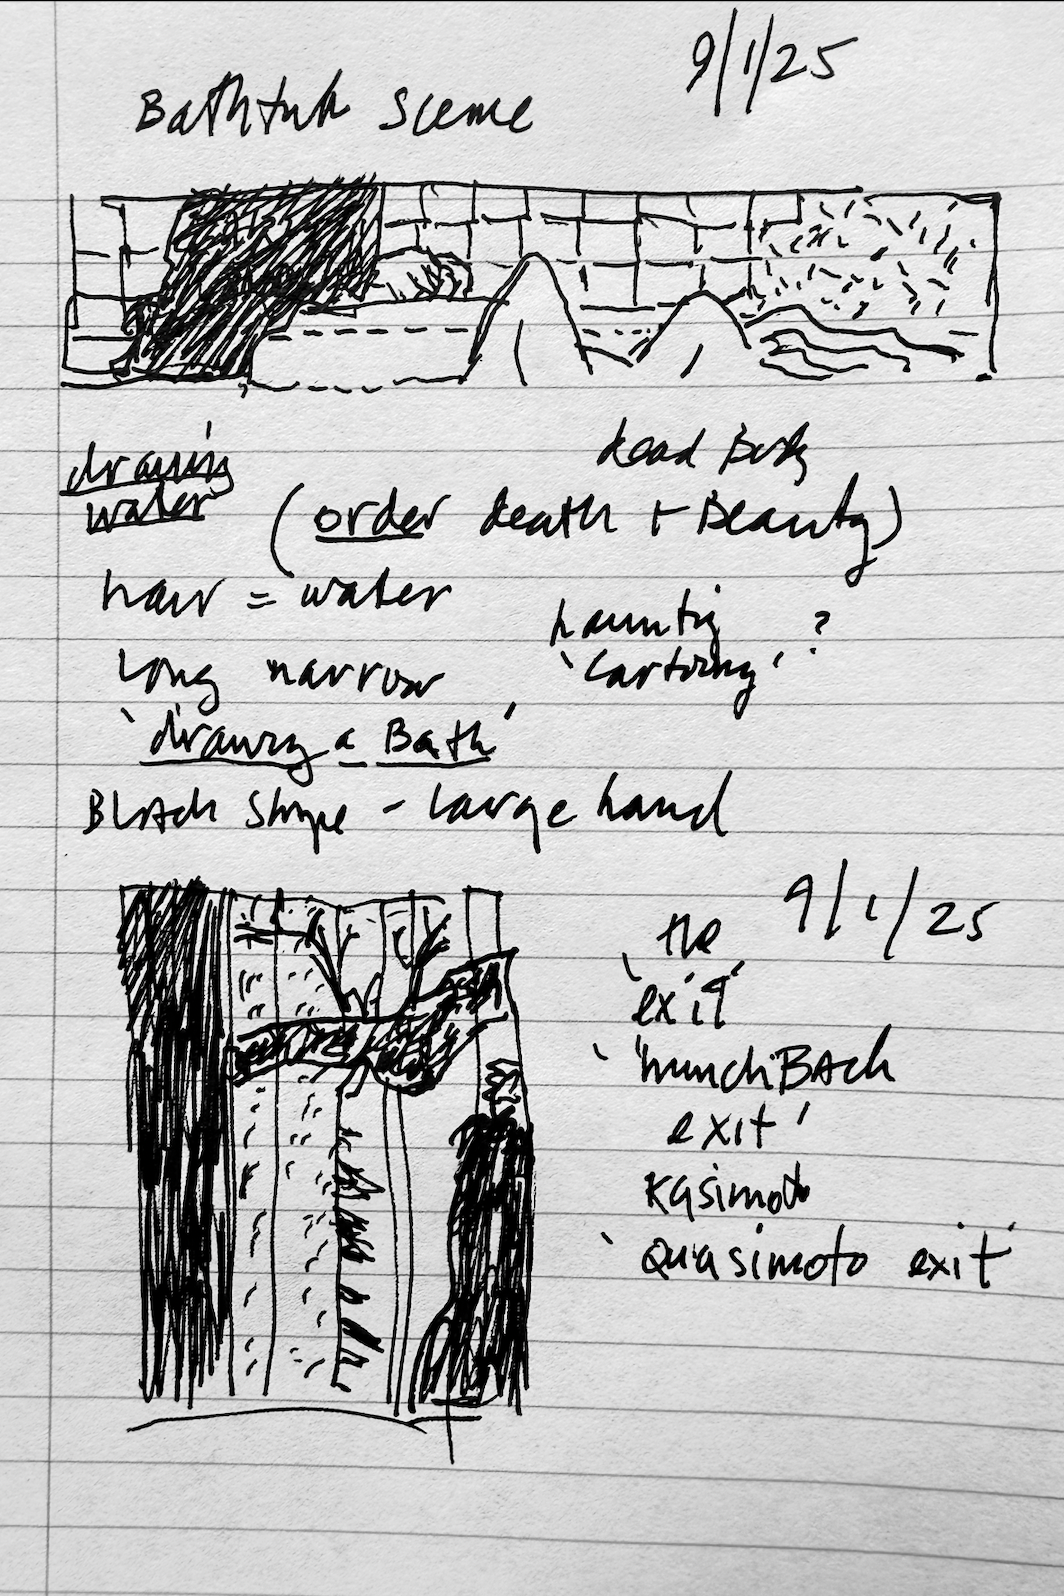 9/1/25
Bathtub Scene
drawing
water
dead Body
(order death + Beauty)
hair = water
haunting
'cartoony' ?
long narrow
'drawing a Bath'
Black Shape - large hand
9/1/25
the
'exit'
'hunchBack
exit'
Kasimoto
'quasimoto exit'